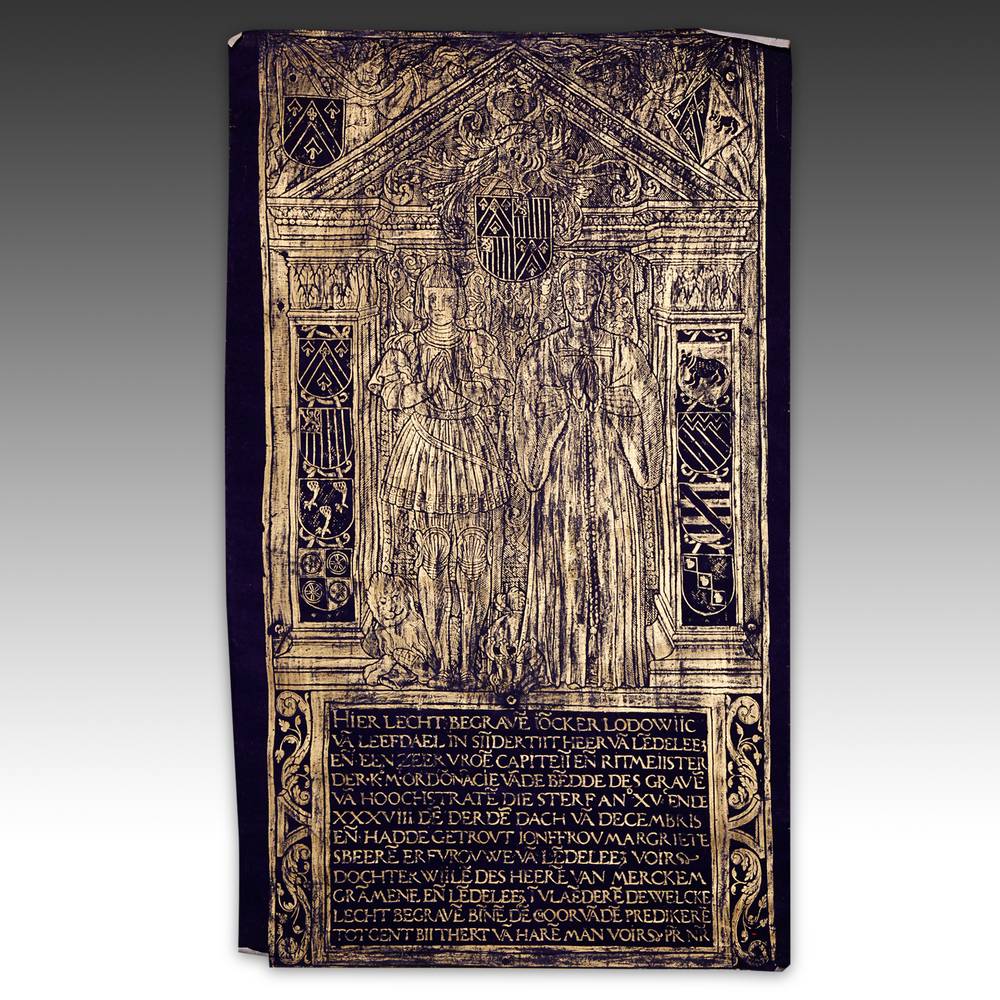 HIER LECHT BEGRAVĒ IŌCKER LODOWIIC
VĀ LEEFDAEL IN SIJDERTIIT HEER VĀ LĒDELEE
EN̄ EEN ZEER VROĒ CAPITEIJ EN̄ RITMEIISTER
DER·K·M·ORDŌNACIE VĀDE BĒDDE DES GRAVĒ
VĀ HOOCHSTRATĒ DIE STERF AN° XV ENDE
XXXVIII DĒ DER DĒ DACH VĀ DECEMBRIS
EN̄ HADDE GETROVT IONFFROV MARGRIETE
SBEERĒ ERFVROVWE VĀ LĒDELEE VOIRS
DOCHTER WIILĒ DES HEERĒ VAN MERCKEM
GRĀMENE EN̄ LĒDELEE I VLAĒDERĒ DE WELCKE
LECHT BEGRAVĒ BĪNĒ DĒ COOR VĀDĒ PREDIKERĒ
TOT GENT BII THERT VĀ HARĒ MAN VOIRS PR NR